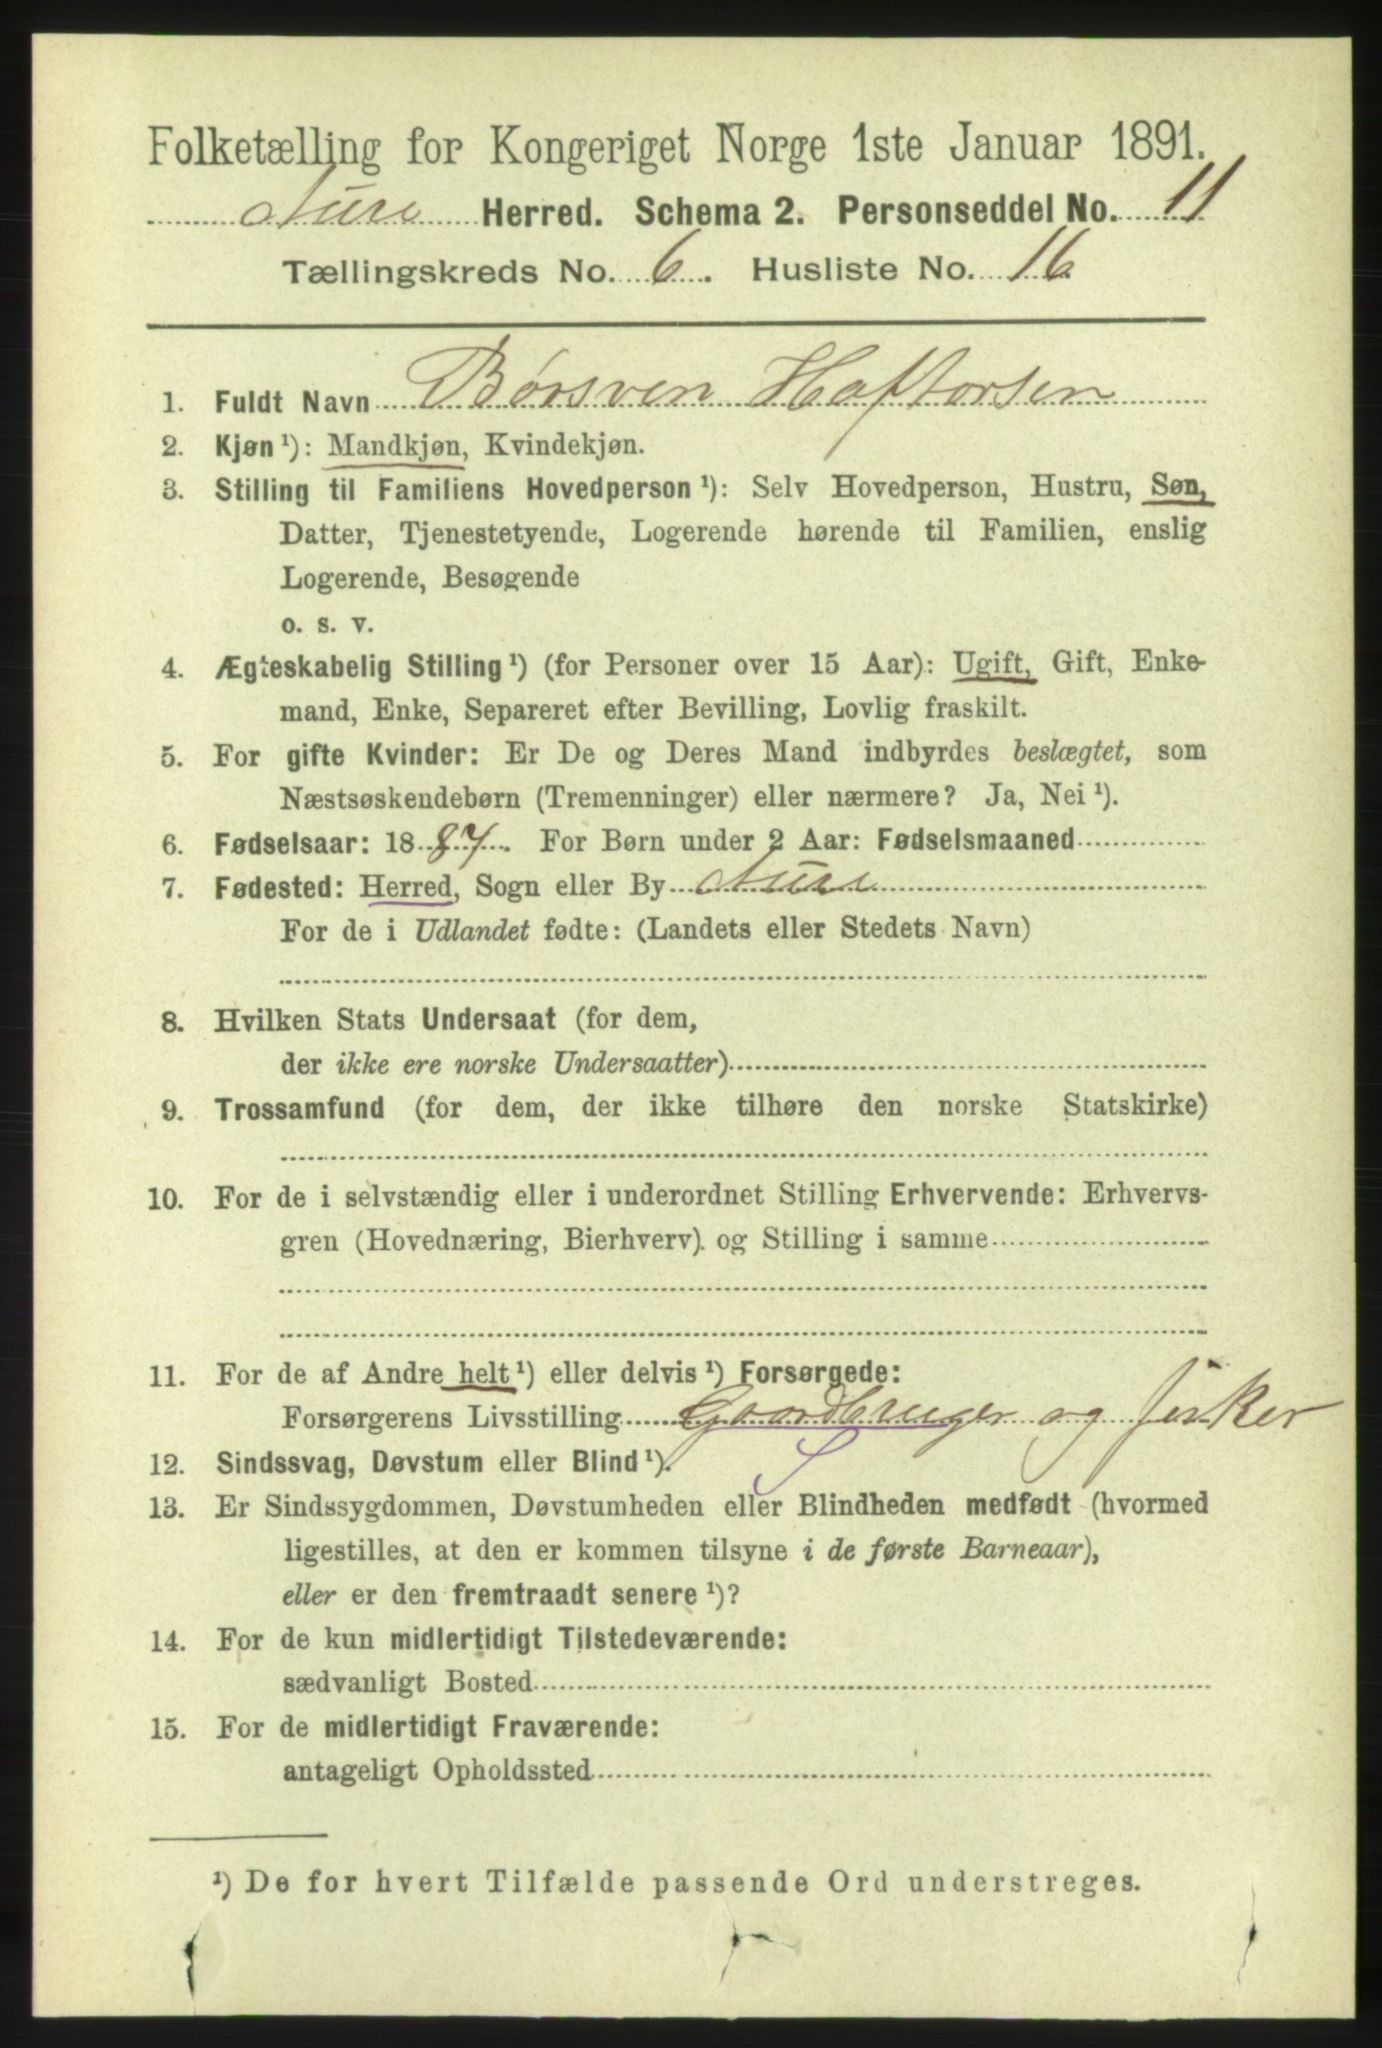 Folketælling for Kongeriget Norge 1ste Januar 1891.
Aure Herred. Schema 2. Personseddel No. 11
Tællingskreds No. 6. Husliste No. 16
1. Fuldt Navn Børsven Haftorsen
2. Kjøn ¹): Mandkjøn, Kvindekjøn.
3. Stilling til Familiens Hovedperson ¹): Selv Hovedperson, Hustru, Søn,
Datter, Tjenestetyende, Logerende hørende til Familien, enslig
Logerende, Besøgende
o. s. v.
4. Ægteskabelig Stilling ¹) (for Personer over 15 Aar): Ugift, Gift, Enke-
mand, Enke, Separeret efter Bevilling, Lovlig fraskilt.
5. For gifte Kvinder: Er De og Deres Mand indbyrdes beslægtet, som
Næstsøskendebørn (Tremenninger) eller nærmere? Ja, Nei ¹).
6. Fødselsaar: 1887. For Børn under 2 Aar: Fødselsmaaned
7. Fødested: Herred, Sogn eller By Aure
For de i Udlandet fødte: (Landets eller Stedets Navn)
8. Hvilken Stats Undersaat (for dem,
der ikke ere norske Undersaatter)
9. Trossamfund (for dem, der ikke tilhøre den norske Statskirke)
10. For de i selvstændig eller i underordnet Stilling Erhvervende: Erhvervs-
gren (Hovednæring, Bierhverv) og Stilling i samme
11. For de af Andre helt ¹) eller delvis ¹) Forsørgede:
Forsørgerens Livsstilling Gaardbruger og fisker
12. Sindssvag, Døvstum eller Blind ¹). S
13. Er Sindssygdommen, Døvstumheden eller Blindheden medfødt (hvormed
ligestilles, at den er kommen tilsyne i de første Barneaar),
eller er den fremtraadt senere ¹)?
14. For de kun midlertidigt Tilstedeværende:
sædvanligt Bosted
15. For de midlertidigt Fraværende:
antageligt Opholdssted
¹) De for hvert Tilfælde passende Ord understreges.